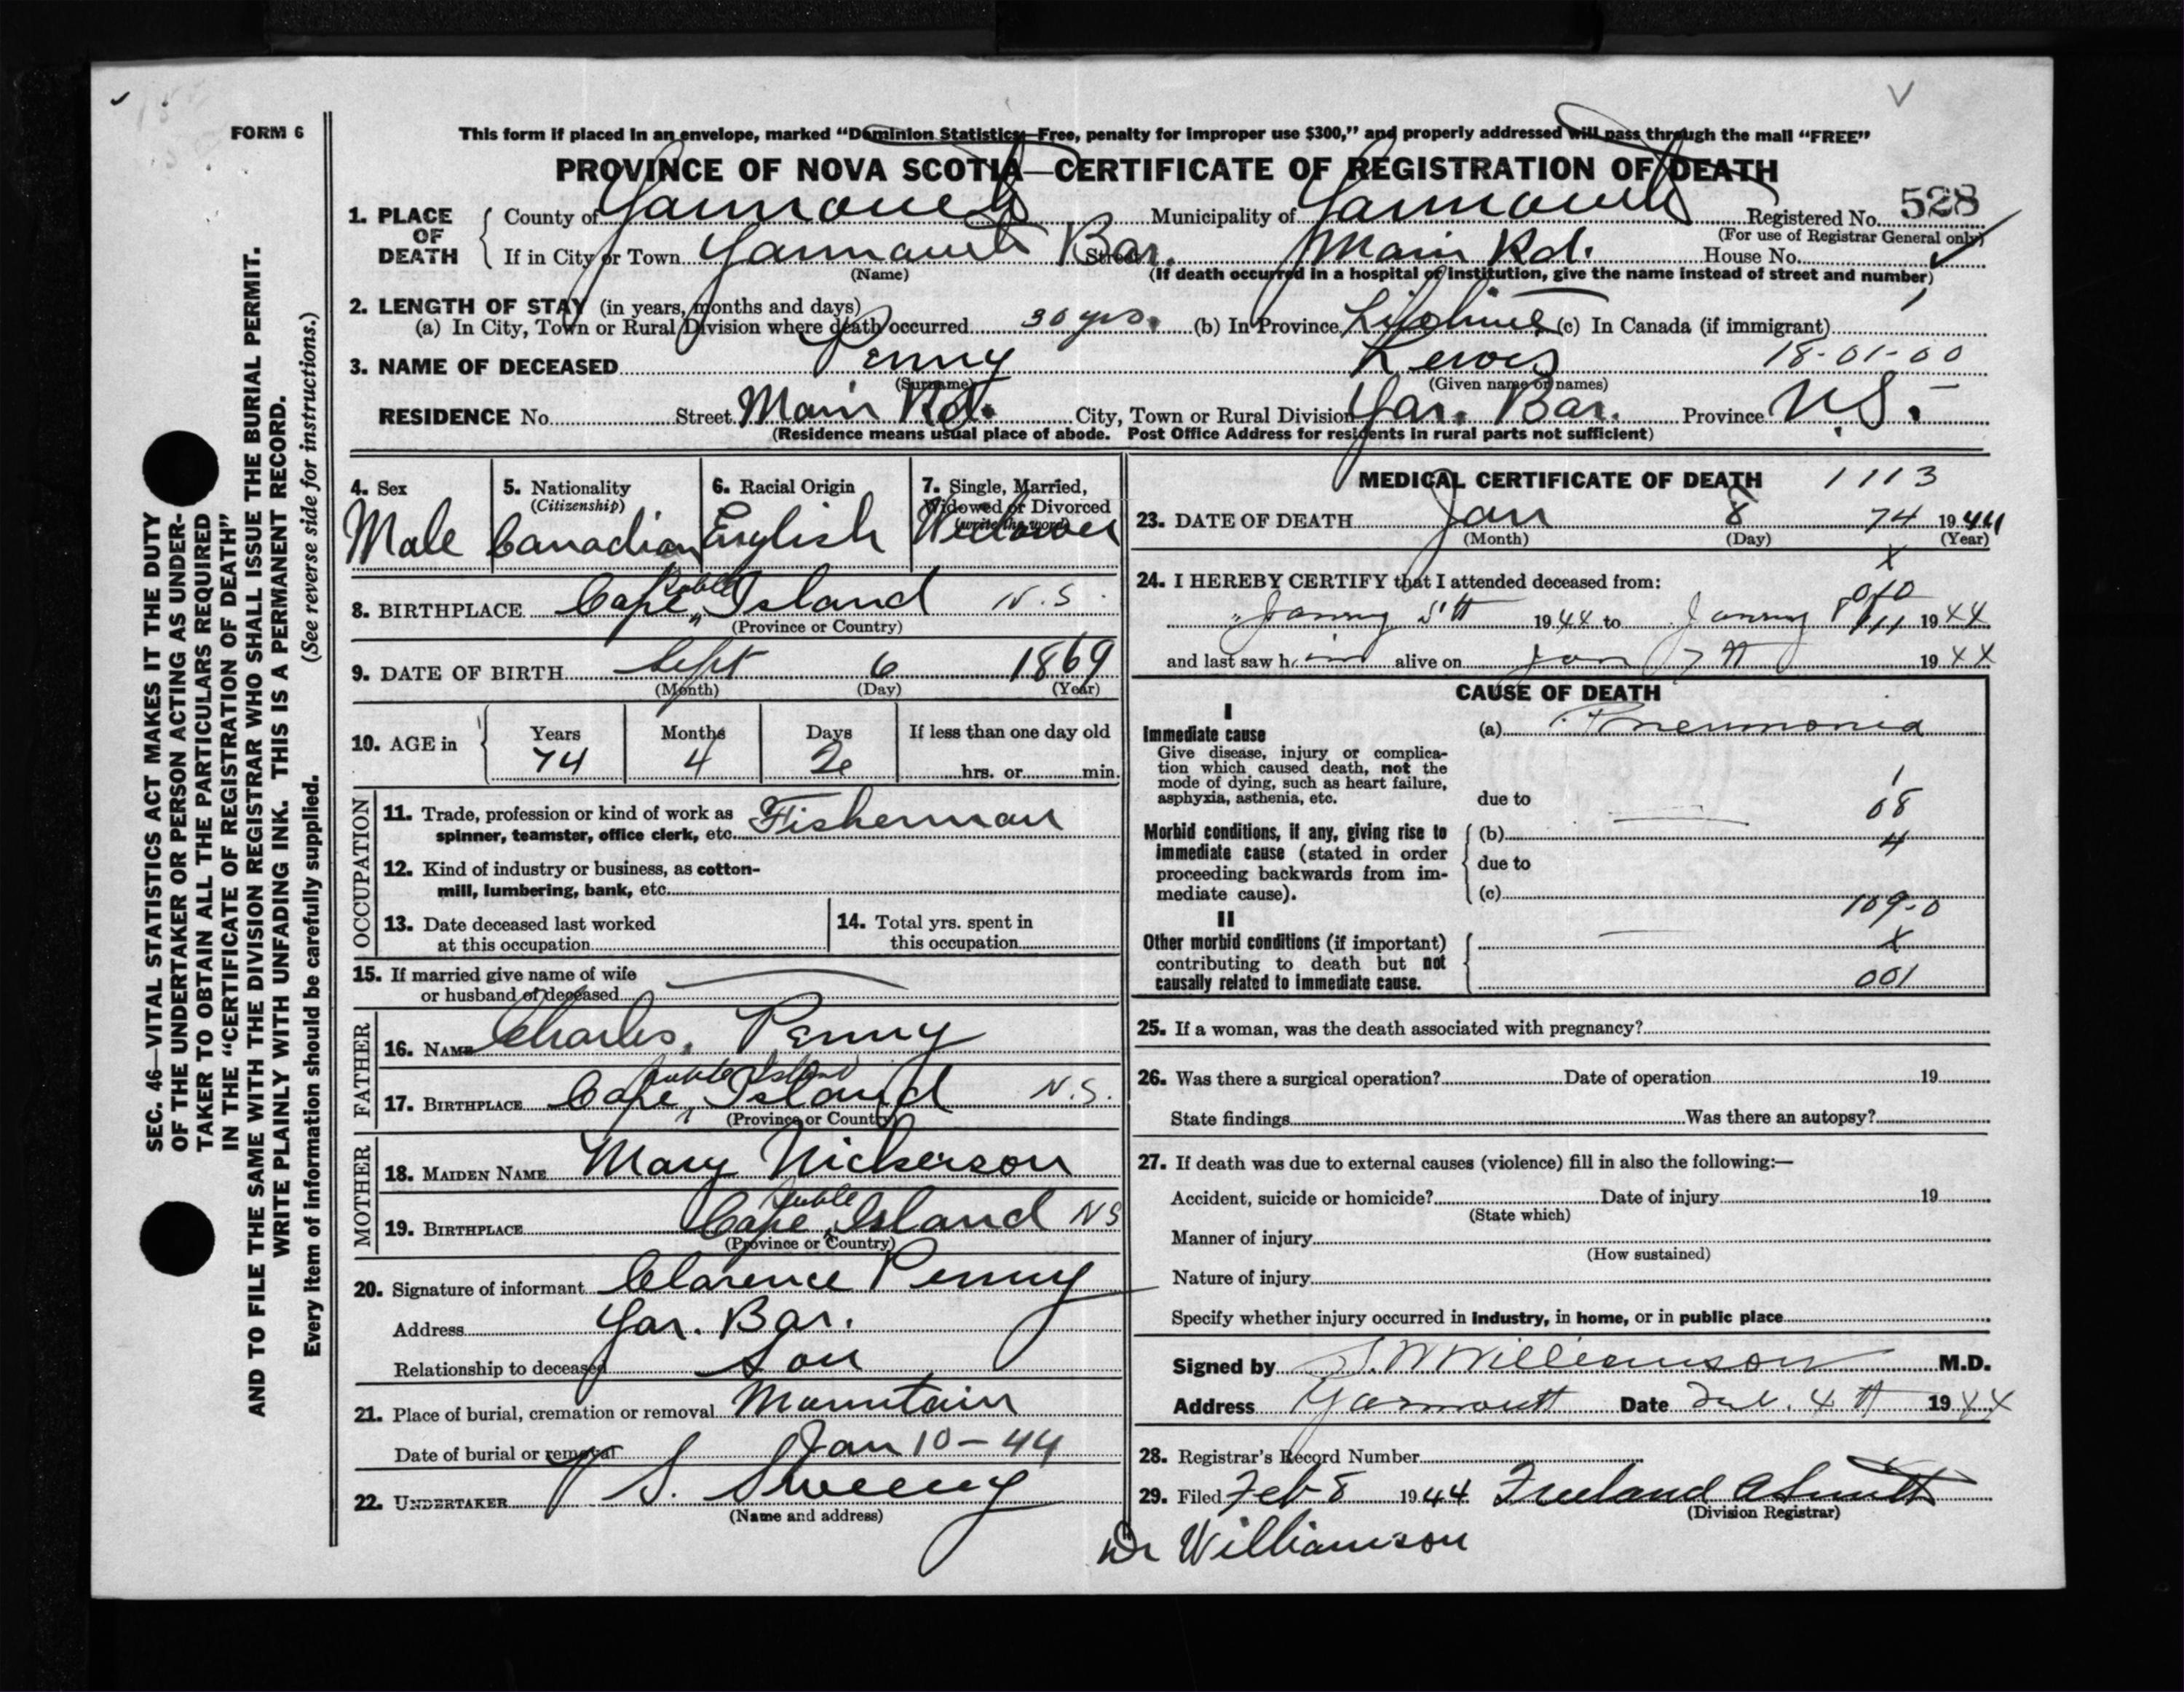 FORM 6
This form if placed in an envelope, marked “Dominion Statistics—Free, penalty for improper use $300,” and properly addressed will pass through the mail “FREE”
PROVINCE OF NOVA SCOTIA—CERTIFICATE OF REGISTRATION OF DEATH
1. PLACE OF DEATH County of Yarmouth Municipality of Yarmouth Registered No. 528
(For use of Registrar General only)
If in City or Town Yarmouth Bar. Street Main Rd. House No.
(Name) (If death occurred in a hospital or institution, give the name instead of street and number)
2. LENGTH OF STAY (in years, months and days)
(a) In City, Town or Rural Division where death occurred 30 yrs. (b) In Province Lifetime (c) In Canada (if immigrant)
3. NAME OF DECEASED Penny Lewis 18-01-00
(Surname) (Given name or names)
RESIDENCE No. Street Main Rd. City, Town or Rural Division Yar. Bar. Province N.S.
(Residence means usual place of abode. Post Office Address for residents in rural parts not sufficient)
4. Sex 5. Nationality (Citizenship) 6. Racial Origin 7. Single, Married, Widowed or Divorced (write the word)
Male Canadian English Widower
8. BIRTHPLACE Cape Sable Island N.S.
(Province or Country)
9. DATE OF BIRTH Sept 6 1869
(Month) (Day) (Year)
10. AGE in Years Months Days If less than one day old
74 4 2 hrs. or min.
OCCUPATION
11. Trade, profession or kind of work as Fisherman
spinner, teamster, office clerk, etc.
12. Kind of industry or business, as cotton-
mill, lumbering, bank, etc.
13. Date deceased last worked at this occupation 14. Total yrs. spent in this occupation
15. If married give name of wife
or husband of deceased
FATHER
16. NAME Charles Penny
17. BIRTHPLACE Cape Sable Island Island N.S.
(Province or Country)
MOTHER
18. MAIDEN NAME Mary Nickerson
19. BIRTHPLACE Cape Sable Island NS
(Province or Country)
20. Signature of informant Clarence Penny
Address Yar. Bar.
Relationship to deceased Son
21. Place of burial, cremation or removal Mountain
Date of burial or removal Jan 10-44
22. UNDERTAKER V S. Sweeny
(Name and address)
MEDICAL CERTIFICATE OF DEATH 1113
23. DATE OF DEATH Jan 8 74 1944
(Month) (Day) (Year)
x
24. I HEREBY CERTIFY that I attended deceased from:
010
5th 1944 to 8th 1944
and last saw him alive on Jan 7th 1944
CAUSE OF DEATH
I
Immediate cause (a) Pneumonia
Give disease, injury or complica-
tion which caused death, not the
mode of dying, such as heart failure,
asphyxia, asthenia, etc. due to
1
08
Morbid conditions, if any, giving rise to (b)
4
immediate cause (stated in order due to
proceeding backwards from im-
mediate cause). (c)
109-0
II
Other morbid conditions (if important) x
contributing to death but not
causally related to immediate cause. 001
25. If a woman, was the death associated with pregnancy?
26. Was there a surgical operation? Date of operation 19
State findings Was there an autopsy?
27. If death was due to external causes (violence) fill in also the following:—
Accident, suicide or homicide? Date of injury 19
(State which)
Manner of injury
(How sustained)
Nature of injury
Specify whether injury occurred in industry, in home, or in public place
Signed by S.W Williamson M.D.
Address Yarmouth Date Feb. 4th 1944
28. Registrar's Record Number
29. Filed Feb 8 1944 Freeland A Smith
(Division Registrar)
Dr Williamson
SEC. 46—VITAL STATISTICS ACT MAKES IT THE DUTY
OF THE UNDERTAKER OR PERSON ACTING AS UNDER-
TAKER TO OBTAIN ALL THE PARTICULARS REQUIRED
IN THE “CERTIFICATE OF REGISTRATION OF DEATH”
AND TO FILE THE SAME WITH THE DIVISION REGISTRAR WHO SHALL ISSUE THE BURIAL PERMIT.
WRITE PLAINLY WITH UNFADING INK. THIS IS A PERMANENT RECORD.
Every item of information should be carefully supplied. (See reverse side for instructions.)